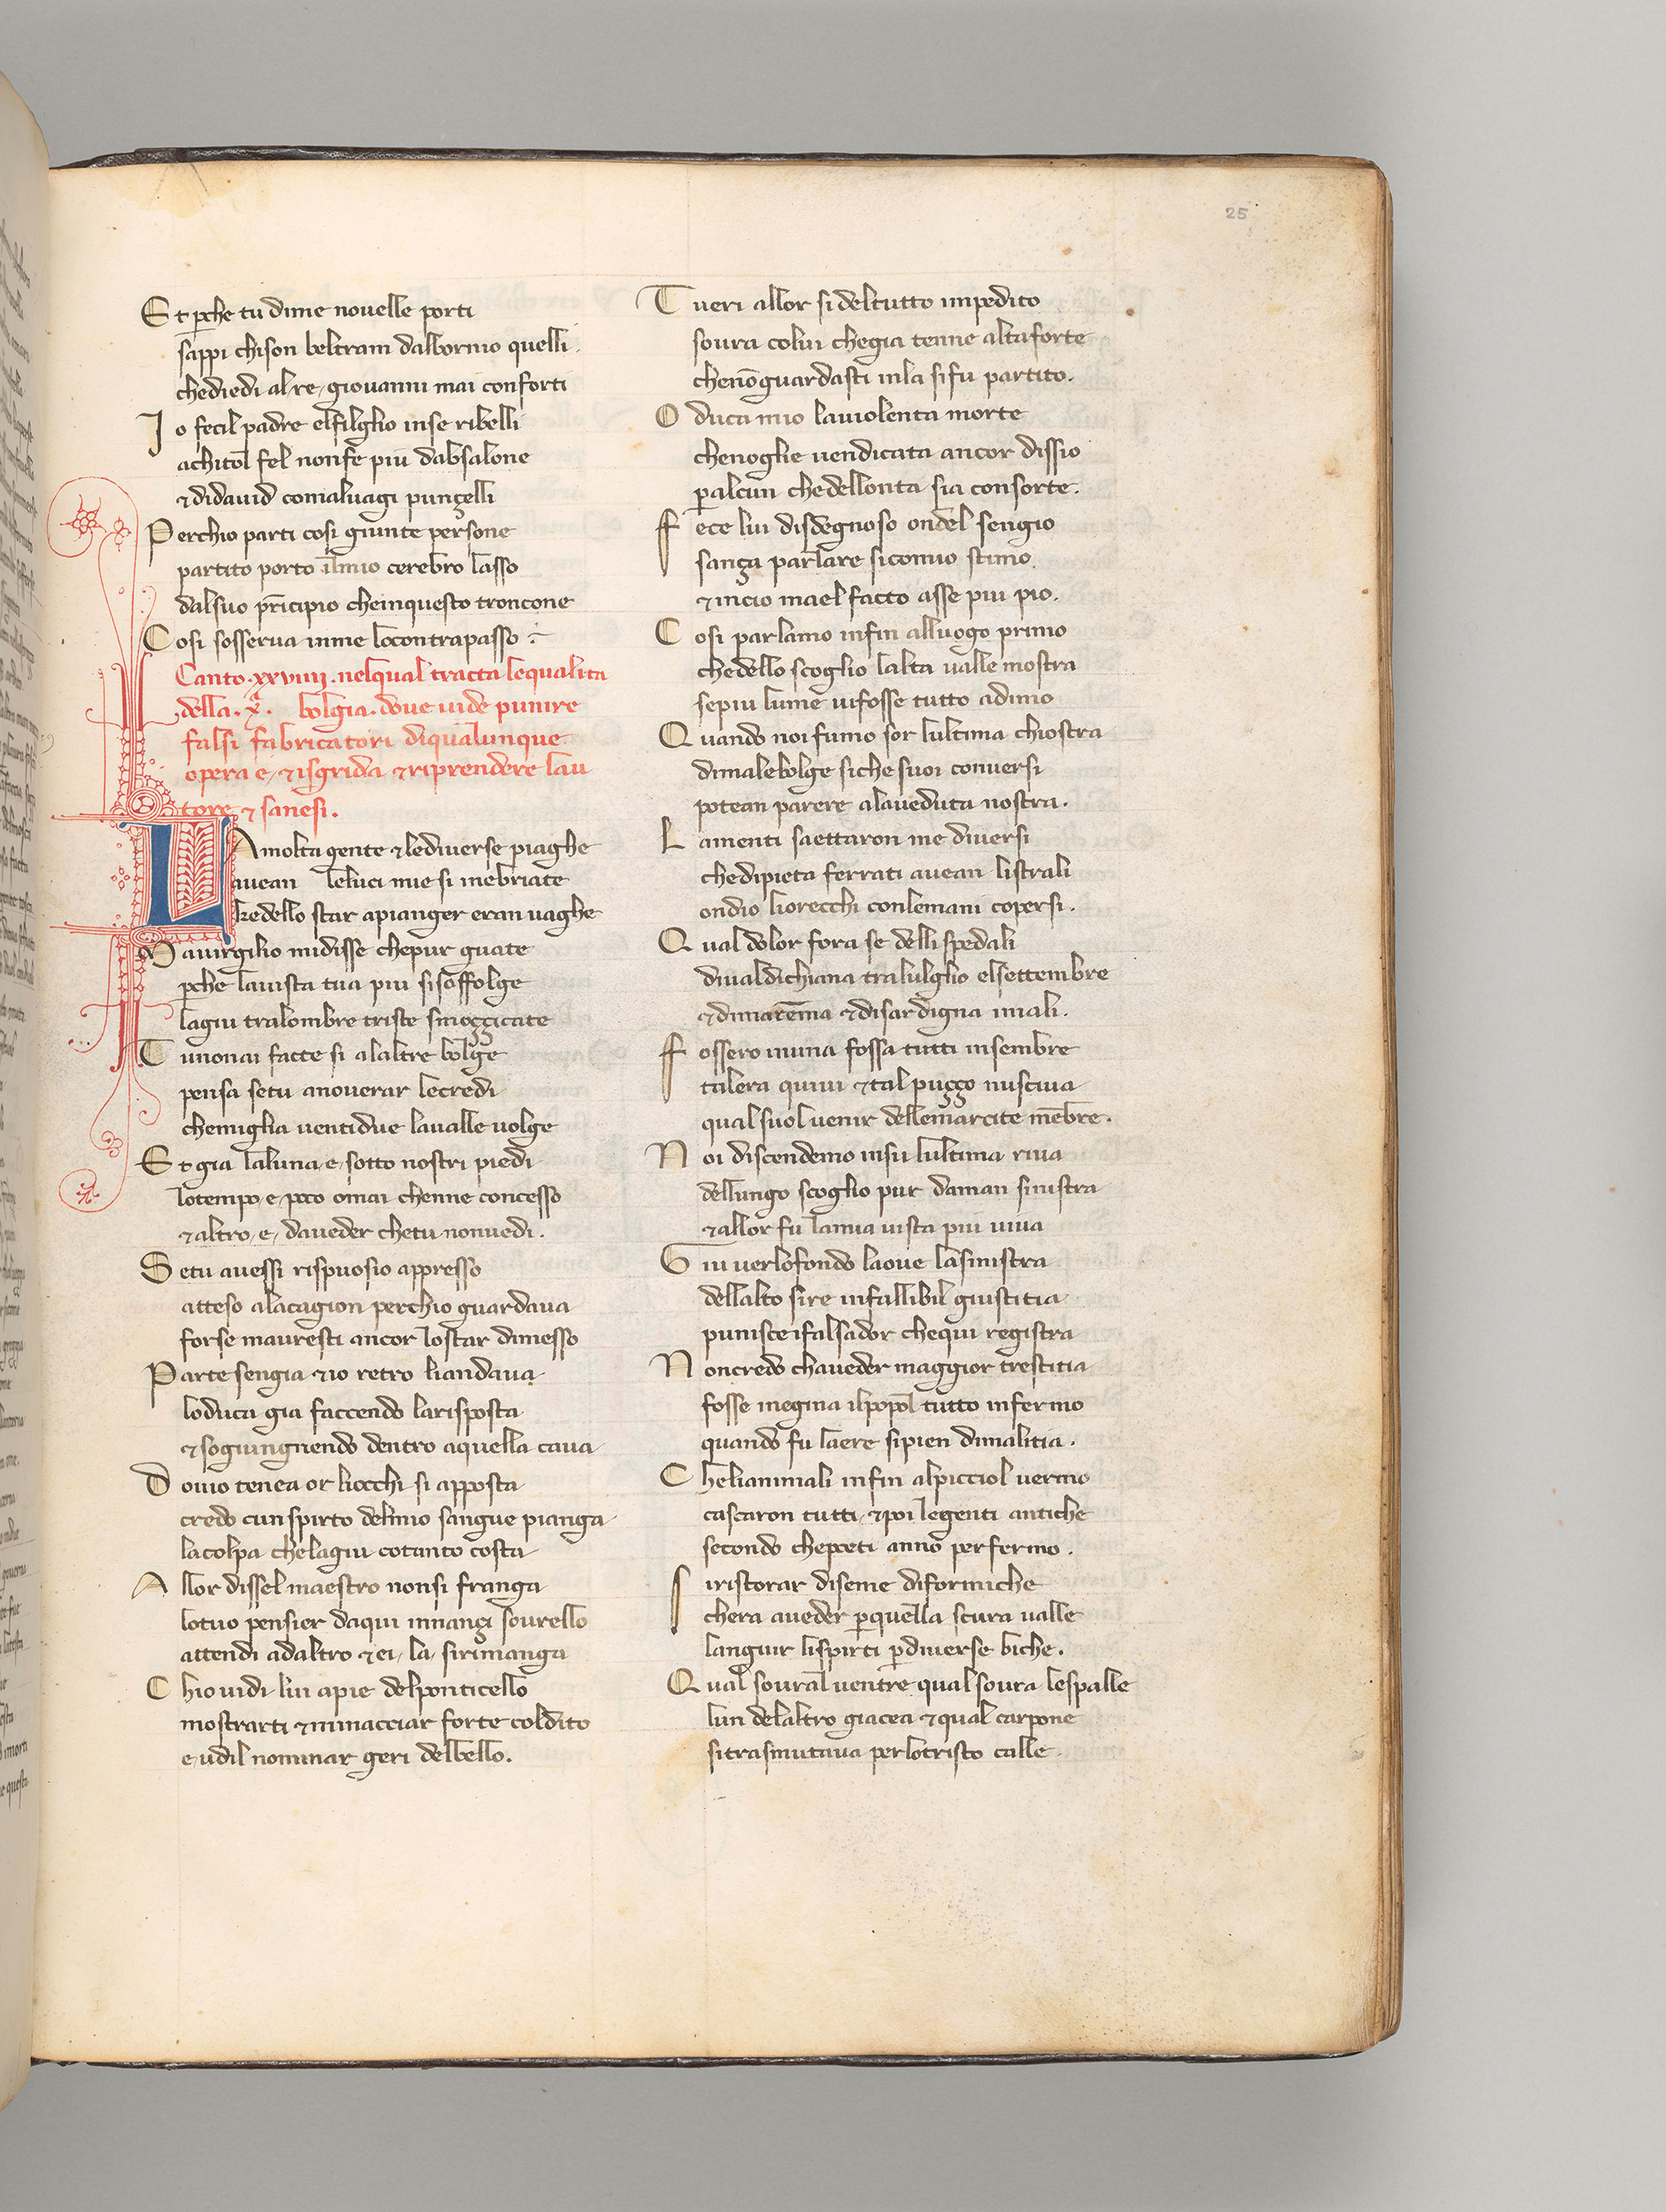 25
Et perche tu dime nouelle porti
sappi chison beltram dalbornio quelli.
chediedi alre giouanni mai conforti
Io fecil padre elfilglio inse ribelli
achitol fel nonfe piu dabsalone
⁊didauid comaluagi pungelli
Perchio parti cosi giunte persone
partito porto ilmio cerebro lasso
dalsuo principio cheinquesto troncone
Cosi sosserua inme locontrapasso
Canto.xxviiij.nelqual tracta lequalita
della.xa. bolgia.doue uide punire
falsi fabricatori diqualunque
opera e, ⁊isgrida ⁊riprendere lau
tore ⁊ sanesi.
LAmolta gente ⁊lediuerse piaghe
auean leluci mie si inebriate
kedello star apianger eran uaghe
Mauirgilio midisse chepur guate
perche lauista tua piu sisoffolge
lagiu tralombre triste smoççicate
Tu nonai facte si alaltre bolge
pensa setu anouerar lecredi
chemiglia uentidue laualle uolge
Et gia laluna e, sotto nostri piedi
lotempo e, poco omai chenne concesso
⁊altro, e, daueder chetu nonuedi.
Setu auessi rispuosio appresso
atteso alacagion perchio guardaua
forse mauresti ancor lostar dimesso
Parte sengia ⁊io retro liandaua
loduca gia faccendo larisposta
⁊sogiungnendo dentro aquella caua
Douio tenea or liocchi si apposta
credo cun spirto delmio sangue pianga
lacolpa chelagiu cotanto costa
Allor dissel maestro nonsi franga
lotuo pensier daqui innançi sourello
attendi adaltro ⁊ei, la, sirimanga
Chio uidi lui apie delponticello
mostrarti ⁊minacciar forte coldito
e, udil nominar geri delbello.
Tueri allor si deltutto impedito
soura colui chegia tenne altaforte
chenōguardasti inla sifu partito.
O duca mio lauiolenta morte
chenoglie uendicata ancor dissio
peralcun chedellonta sia consorte.
Fece lui disdegnoso ondel sengio
sança parlare sicomio stimo
⁊incio mael facto asse piu pio.
Cosi parlamo infin alluogo primo
chedello scoglio laltra ualle mostra
sepiu lume uifosse tutto adimo
Quando noi fumo sor lultima chiostra
dimalebolge siche suoi conuersi
potean parere alaueduta nostra.
Lamenti saettaron me diuersi
chedipieta ferrati auean listrali
ondio liorecchi conlemani copersi.
Qual dolor fora se delli spedali
diualdichiana tralulglio elsettembre
⁊dimarēma ⁊disardigna imali.
Fossero inuna fossa tutti insembre
talera quiui ⁊tal puçço nusciua
qual suol uenir dellemarcite mēbre.
Noi discendemo insu lultima riua
dellungo scoglio pur daman sinistra
⁊allor fu lamia uista piu uiua
Giu uerlofondo laoue lasinistra
dellalto sire infallibil giustitia
punisce ifalsador chequi registra
Noncredo chaueder maggior trestitia
fosse inegina ilpopol tutto infermo
quando fu laere sipien dimalitia.
Chelianimali infin alpicciol uermo
cascaron tutti, ⁊poi legenti antiche
secondo chepoeti anno perfermo.
Siristorar diseme diformiche
chera aueder perquella scura ualle
languir lispirti perdiuerse biche.
Qual soural uentre qual soura lespalle
lun delaltro giacea ⁊qual carpone
sitrasmutaua perlotristo calle